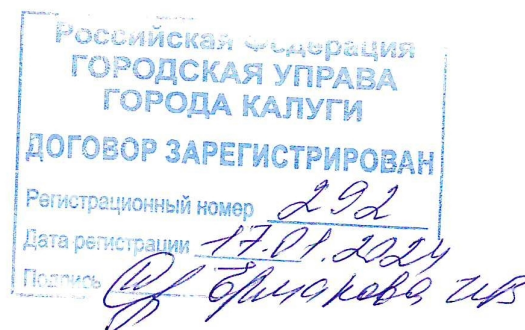 Российская Федерация
ГОРОДСКАЯ УПРАВА
ГОРОДА КАЛУГИ
ДОГОВОР ЗАРЕГИСТРИРОВАН
Регистрационный номер 292
Дата регистрации 17.01.2024
Подпись Ермакова ИВ